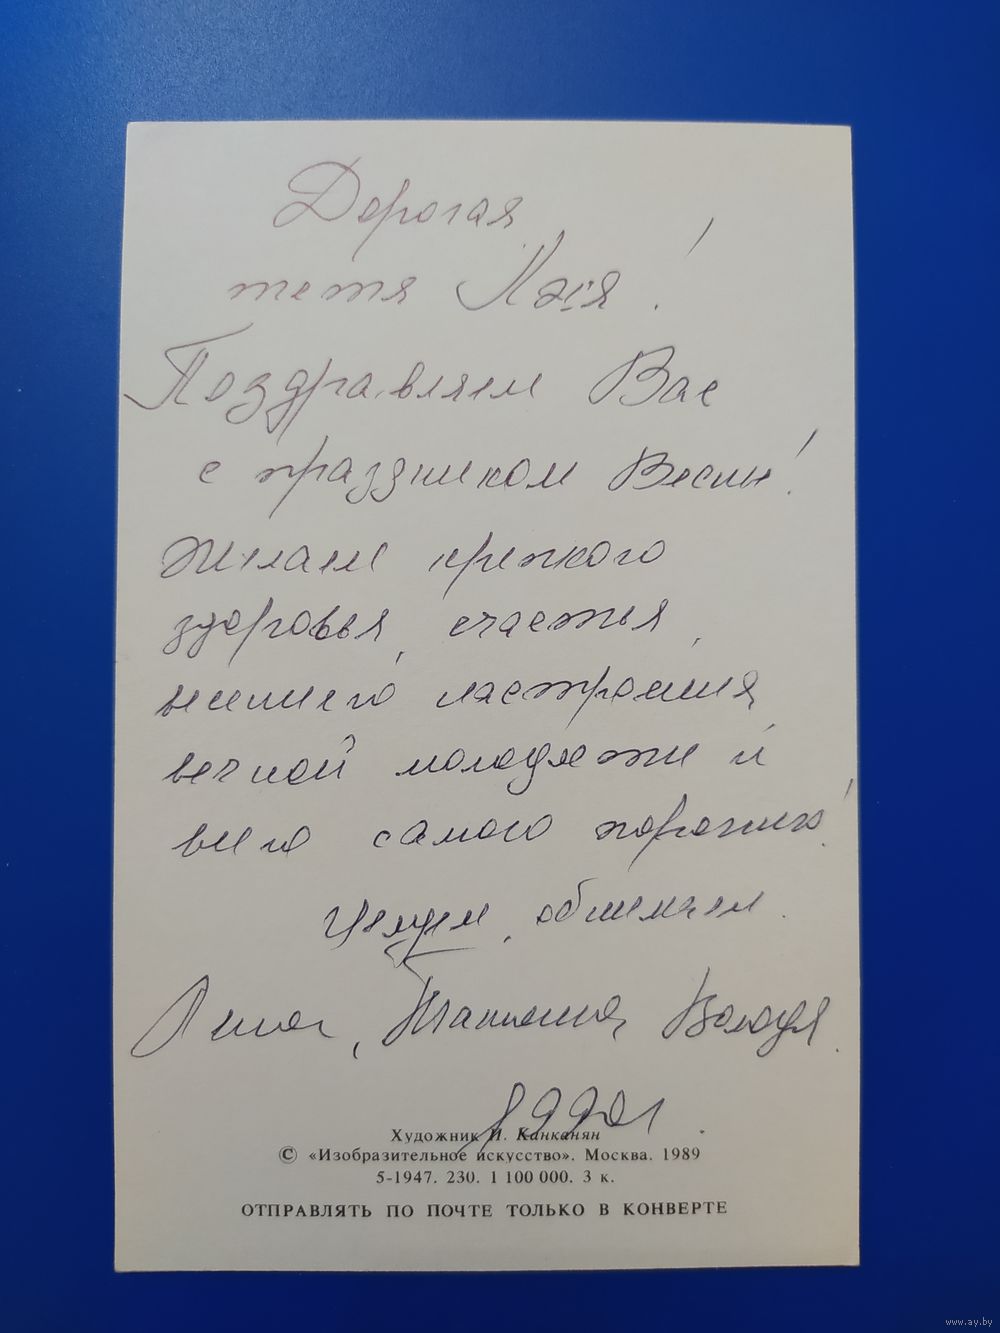 Дорогая
тетя !
Поздравляем Вас
с праздником Весны!
Желаем крепкого
здоровья, счастья,
весеннего настроения,
вечной молодости и
всего самого хорошего!
Целуем, обнимаем.
Татьяна, Володя.
1990г.
Художник И. Канканян
© «Изобразительное искусство». Москва. 1989
5-1947. 230. 1 100 000. 3 к.
ОТПРАВЛЯТЬ ПО ПОЧТЕ ТОЛЬКО В КОНВЕРТЕ
www.ay.by